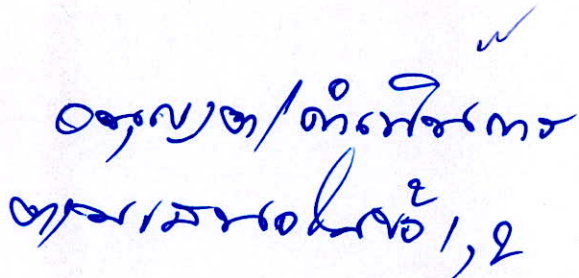 อนุญาต/ดำเนินการ
ตามเสนอในข้อ 1, 2